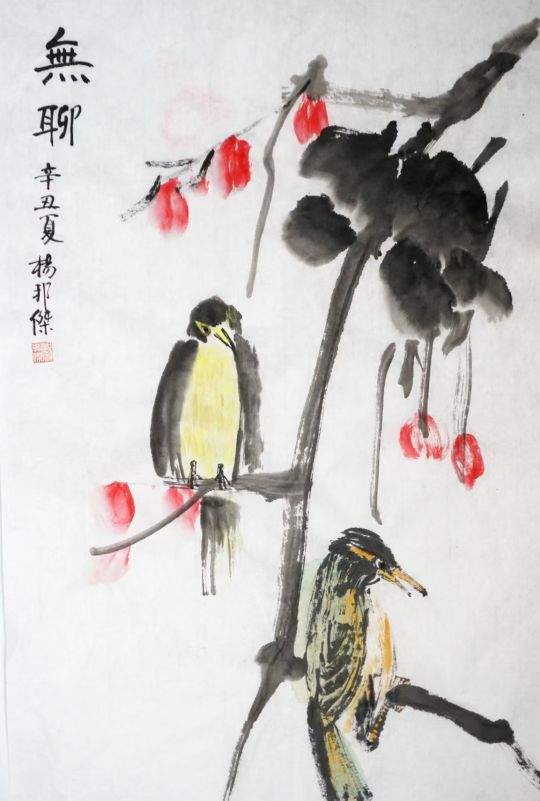 無聊
辛丑夏 楊邦傑